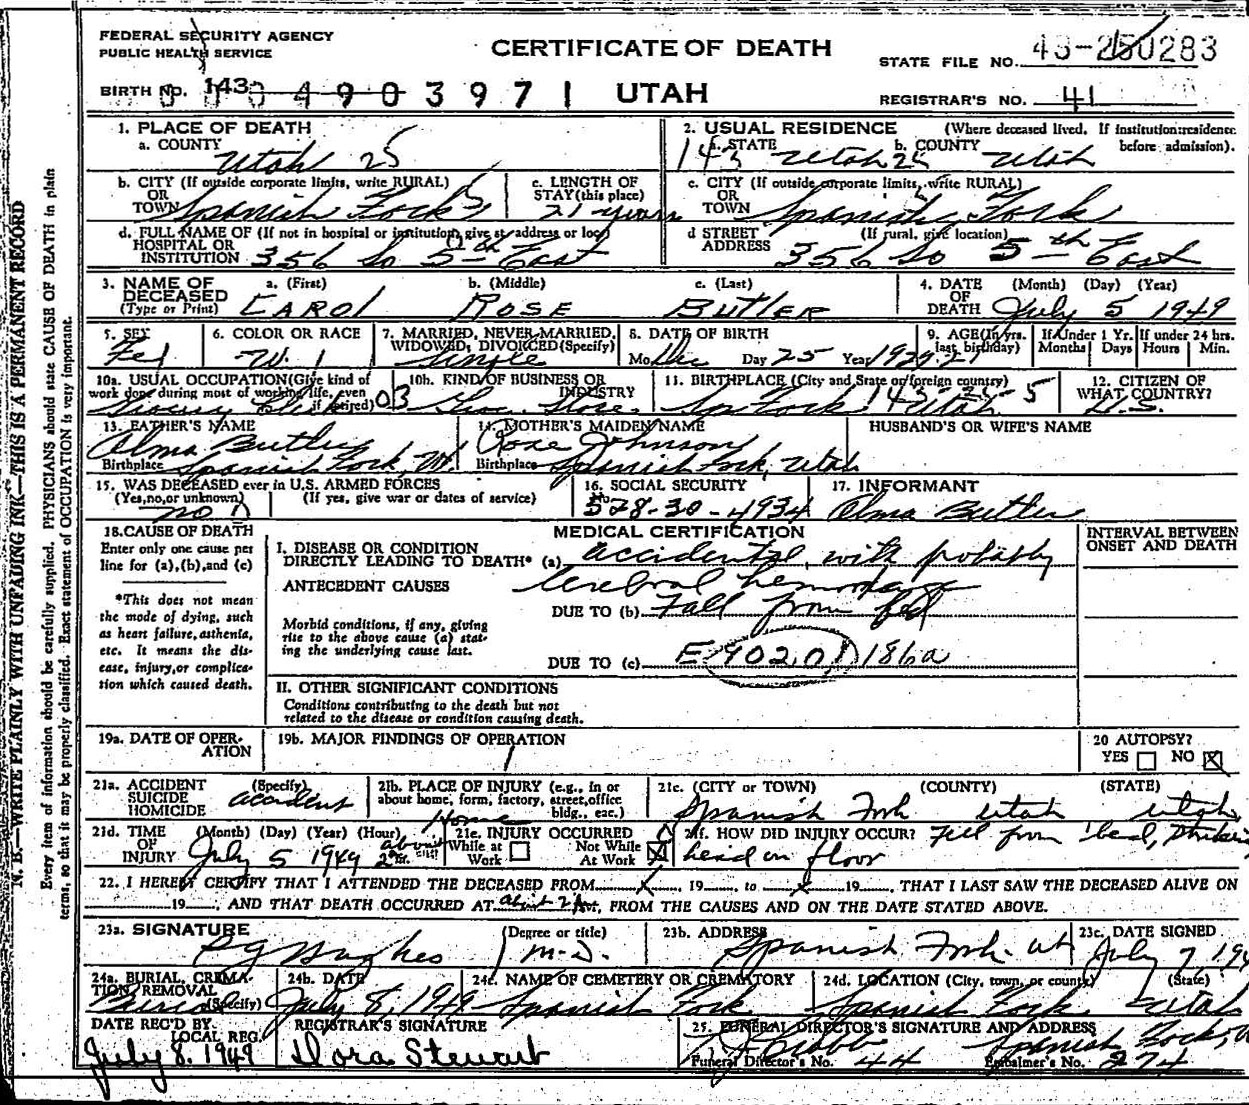 FEDERAL SECURITY AGENCY
PUBLIC HEALTH SERVICE
CERTIFICATE OF DEATH
STATE FILE NO. 43-250283
BIRTH NO. 143
4903971
UTAH
REGISTRAR'S NO. 41
N. B.—WRITE PLAINLY WITH UNFADING INK—THIS IS A PERMANENT RECORD
Every item of information should be carefully supplied. PHYSICIANS should state CAUSE OF DEATH in plain
terms, so that it may be properly classified. Exact statement of OCCUPATION is very important.
1. PLACE OF DEATH
a. COUNTY Utah 25
2. USUAL RESIDENCE (Where deceased lived. If institution:residence before admission).
a. STATE 143 Utah 25 b. COUNTY Utah
b. CITY (If outside corporate limits, write RURAL)
OR TOWN Spanish Fork
c. LENGTH OF STAY (this place) 21 years
c. CITY (If outside corporate limits, write RURAL)
OR TOWN Spanish Fork
d. FULL NAME OF (If not in hospital or institution, give st. address or loc.)
HOSPITAL OR INSTITUTION 356 So 5th East
d STREET ADDRESS (If rural, give location) 356 So 5th East
3. NAME OF DECEASED (Type or Print)
a. (First) CAROL b. (Middle) ROSE c. (Last) BUTLER
4. DATE OF DEATH (Month) (Day) (Year) July 5 1949
5. SEX Fe 1
6. COLOR OR RACE W. 1
7. MARRIED, NEVER MARRIED, WIDOWED, DIVORCED (Specify) Single
8. DATE OF BIRTH
Mo Dec Day 25 Year
9. AGE (In yrs. last birthday) 21
If Under 1 Yr. Months Days
If under 24 hrs. Hours Min.
10a. USUAL OCCUPATION (Give kind of work done during most of working life, even if retired) Grocery Clerk
10b. KIND OF BUSINESS OR INDUSTRY Groc. Store
11. BIRTHPLACE (City and State or foreign country) Sp Fork Utah 143-25-5
12. CITIZEN OF WHAT COUNTRY? U.S.
13. FATHER'S NAME Alma Butler
Birthplace Spanish Fork, Ut
14. MOTHER'S MAIDEN NAME Rose Johnson
Birthplace Spanish Fork, Utah
HUSBAND'S OR WIFE'S NAME
15. WAS DECEASED ever in U.S. ARMED FORCES
(Yes, no, or unknown) (If yes, give war or dates of service)
no
16. SOCIAL SECURITY No. 528-30-4934
17. INFORMANT Alma Butler
18. CAUSE OF DEATH
Enter only one cause per
line for (a), (b), and (c)
*This does not mean
the mode of dying, such
as heart failure, asthenia,
etc. It means the dis-
ease, injury, or complica-
tion which caused death.
MEDICAL CERTIFICATION
INTERVAL BETWEEN ONSET AND DEATH
I. DISEASE OR CONDITION
DIRECTLY LEADING TO DEATH* (a) accidental, with probably
ANTECEDENT CAUSES Cerebral hemorrhage
DUE TO (b) Fall from bed
Morbid conditions, if any, giving
rise to the above cause (a) stat-
ing the underlying cause last.
DUE TO (c) E 902.0 186a
II. OTHER SIGNIFICANT CONDITIONS
Conditions contributing to the death but not
related to the disease or condition causing death.
19a. DATE OF OPER-
ATION
19b. MAJOR FINDINGS OF OPERATION
20 AUTOPSY?
YES NO X
21a. ACCIDENT SUICIDE HOMICIDE (Specify) accident
21b. PLACE OF INJURY (e.g., in or about home, farm, factory, street, office bldg., etc.) Home
21c. (CITY OR TOWN) (COUNTY) (STATE)
Spanish Fork Utah Utah
21d. TIME OF INJURY (Month) (Day) (Year) (Hour) July 5 1949 about 2
21e. INJURY OCCURRED
While at Work Not While At Work X
21f. HOW DID INJURY OCCUR? Fell from bed, Striking
head on floor
22. I HEREBY CERTIFY THAT I ATTENDED THE DECEASED FROM x, 19 , to x 19 , THAT I LAST SAW THE DECEASED ALIVE ON
19 , AND THAT DEATH OCCURRED AT about 2 M, FROM THE CAUSES AND ON THE DATE STATED ABOVE.
23a. SIGNATURE (Degree or title) Hughes M.D.
23b. ADDRESS Spanish Fork Ut
23c. DATE SIGNED July 7, 194
24a. BURIAL, CREMATION, REMOVAL (Specify) Burial
24b. DATE July 8, 1949
24c. NAME OF CEMETERY OR CREMATORY Spanish Fork
24d. LOCATION (City, town, or county) (State) Spanish Fork Utah
DATE REC'D BY LOCAL REG. July 8. 1949
REGISTRAR'S SIGNATURE Dora Stewart
25. FUNERAL DIRECTOR'S SIGNATURE AND ADDRESS
Spanish Fork, U
Funeral Director's No. 44 Embalmer's No. 274